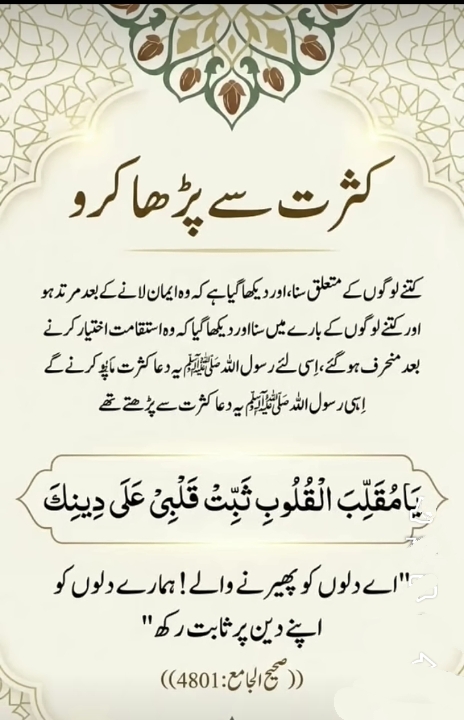 کثرت سے پڑھا کرو
کتنے لوگوں کے متعلق سنا، اور دیکھا گیا ہے کہ وہ ایمان لانے کے بعد مرتد ہو
اور کتنے لوگوں کے بارے میں سنا اور دیکھا گیا کہ وہ استقامت اختیار کرنے
بعد منحرف ہو گئے، اِسی لئے رسول اللہ ﷺ یہ دعا کثرت کرنے گے
اِسی رسول اللہ ﷺ یہ دعا کثرت سے پڑھتے تھے
يَامُقَلِّبَ الْقُلُوبِ ثَبِّتْ قَلْبِيْ عَلَى دِينِكَ
"اے دلوں کو پھیرنے والے! ہمارے دلوں کو
اپنے دین پر ثابت رکھ"
((صحیح الجامع: 4801))